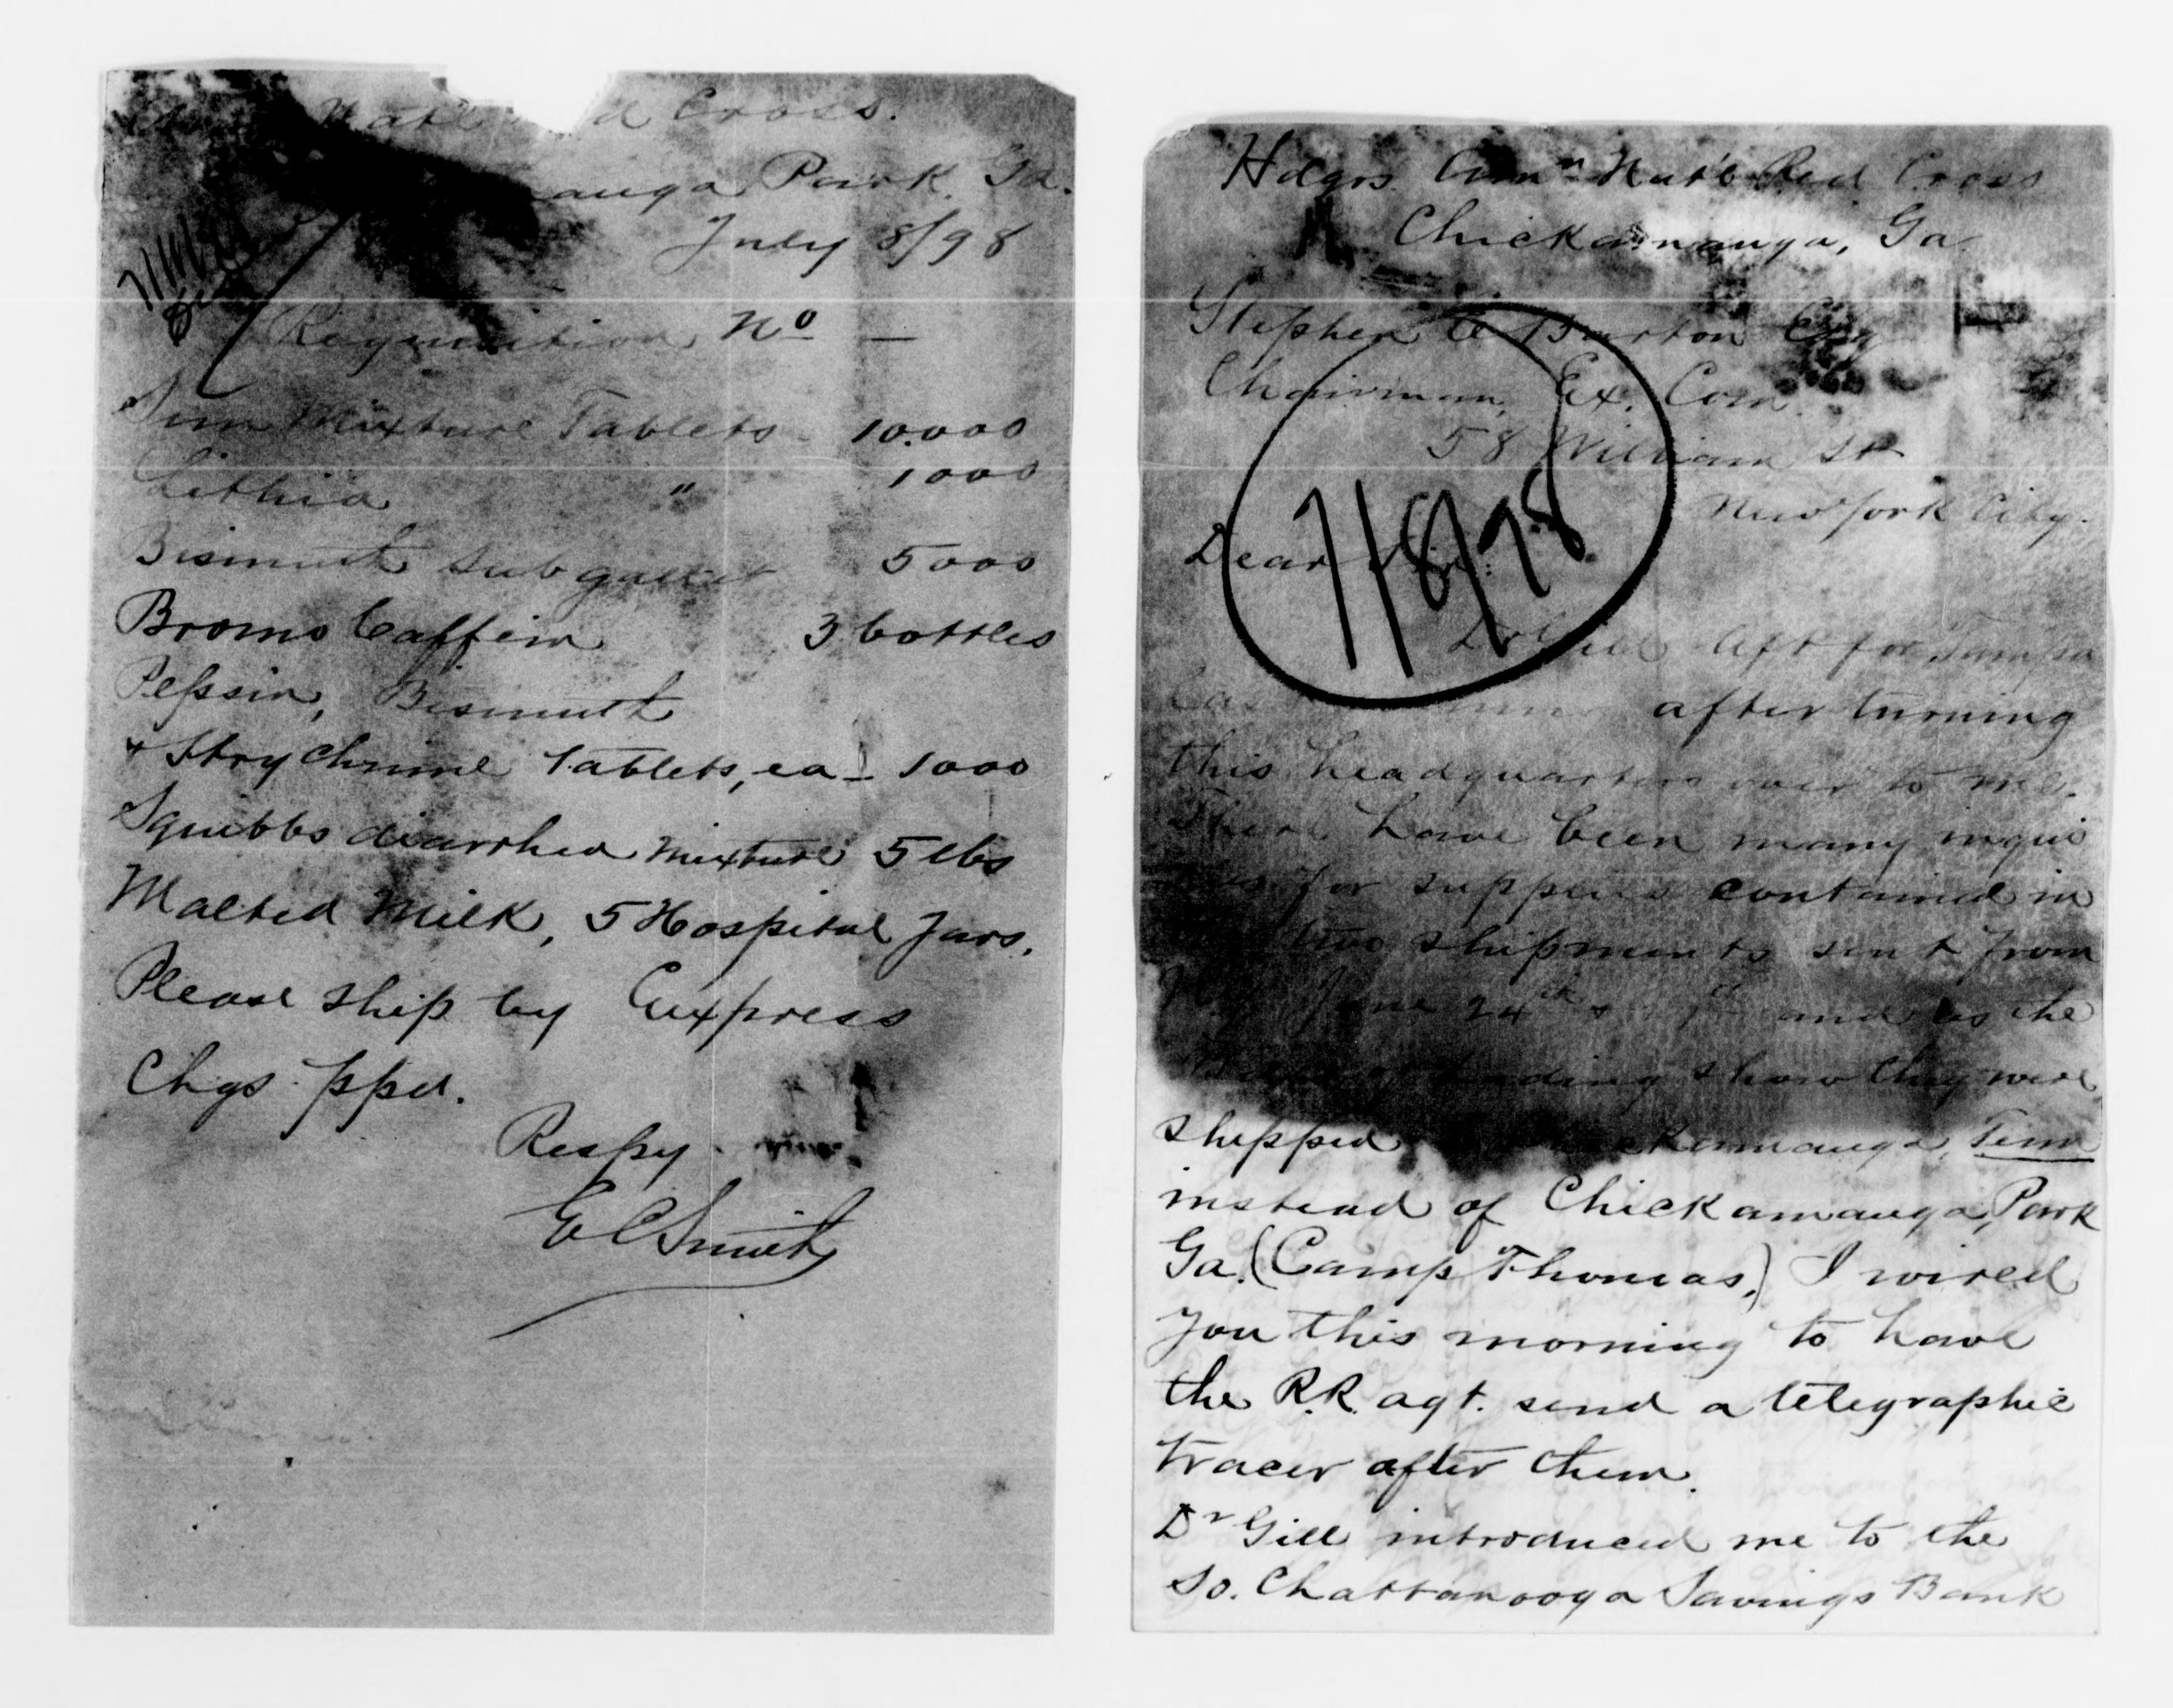 Nat'l Cross.
Park Ga.
July 8/98
Requisition No —
Sun Mixture Tablets 10.000
Lithia " 1000
Bismuth subgallat 5000
Bromo Caffein 3 bottles
Pepsin, Bismuth
+ Strychnine Tablets, ea - 1000
Squibbs diarrhea mixture 5 lbs
Malted Milk, 5 Hospital Jars.
Please ship by Express
Chgs. ppd.
Respy.
E C Smith
Hdqrs. Amn Nat'l Red Cross
Chickamauga, Ga
Stephen E Barton Esq
Chairman, Ex. Com.
58 William St
New York City.
Dear Sir:
7/8/98
Dr Gill left for Tampa
after turning
this headquarters over to me.
There have been many inqui
for supplies contained in
two shipments sent from
June 24th and as the
Lading show they were
shipped Tenn
instead of Chickamauga, Park
Ga. (Camp Thomas,) I wired
you this morning to have
the R.R. agt. send a telegraphic
tracer after them.
Dr Gill introduced me to the
So. Chattanooga Savings Bank